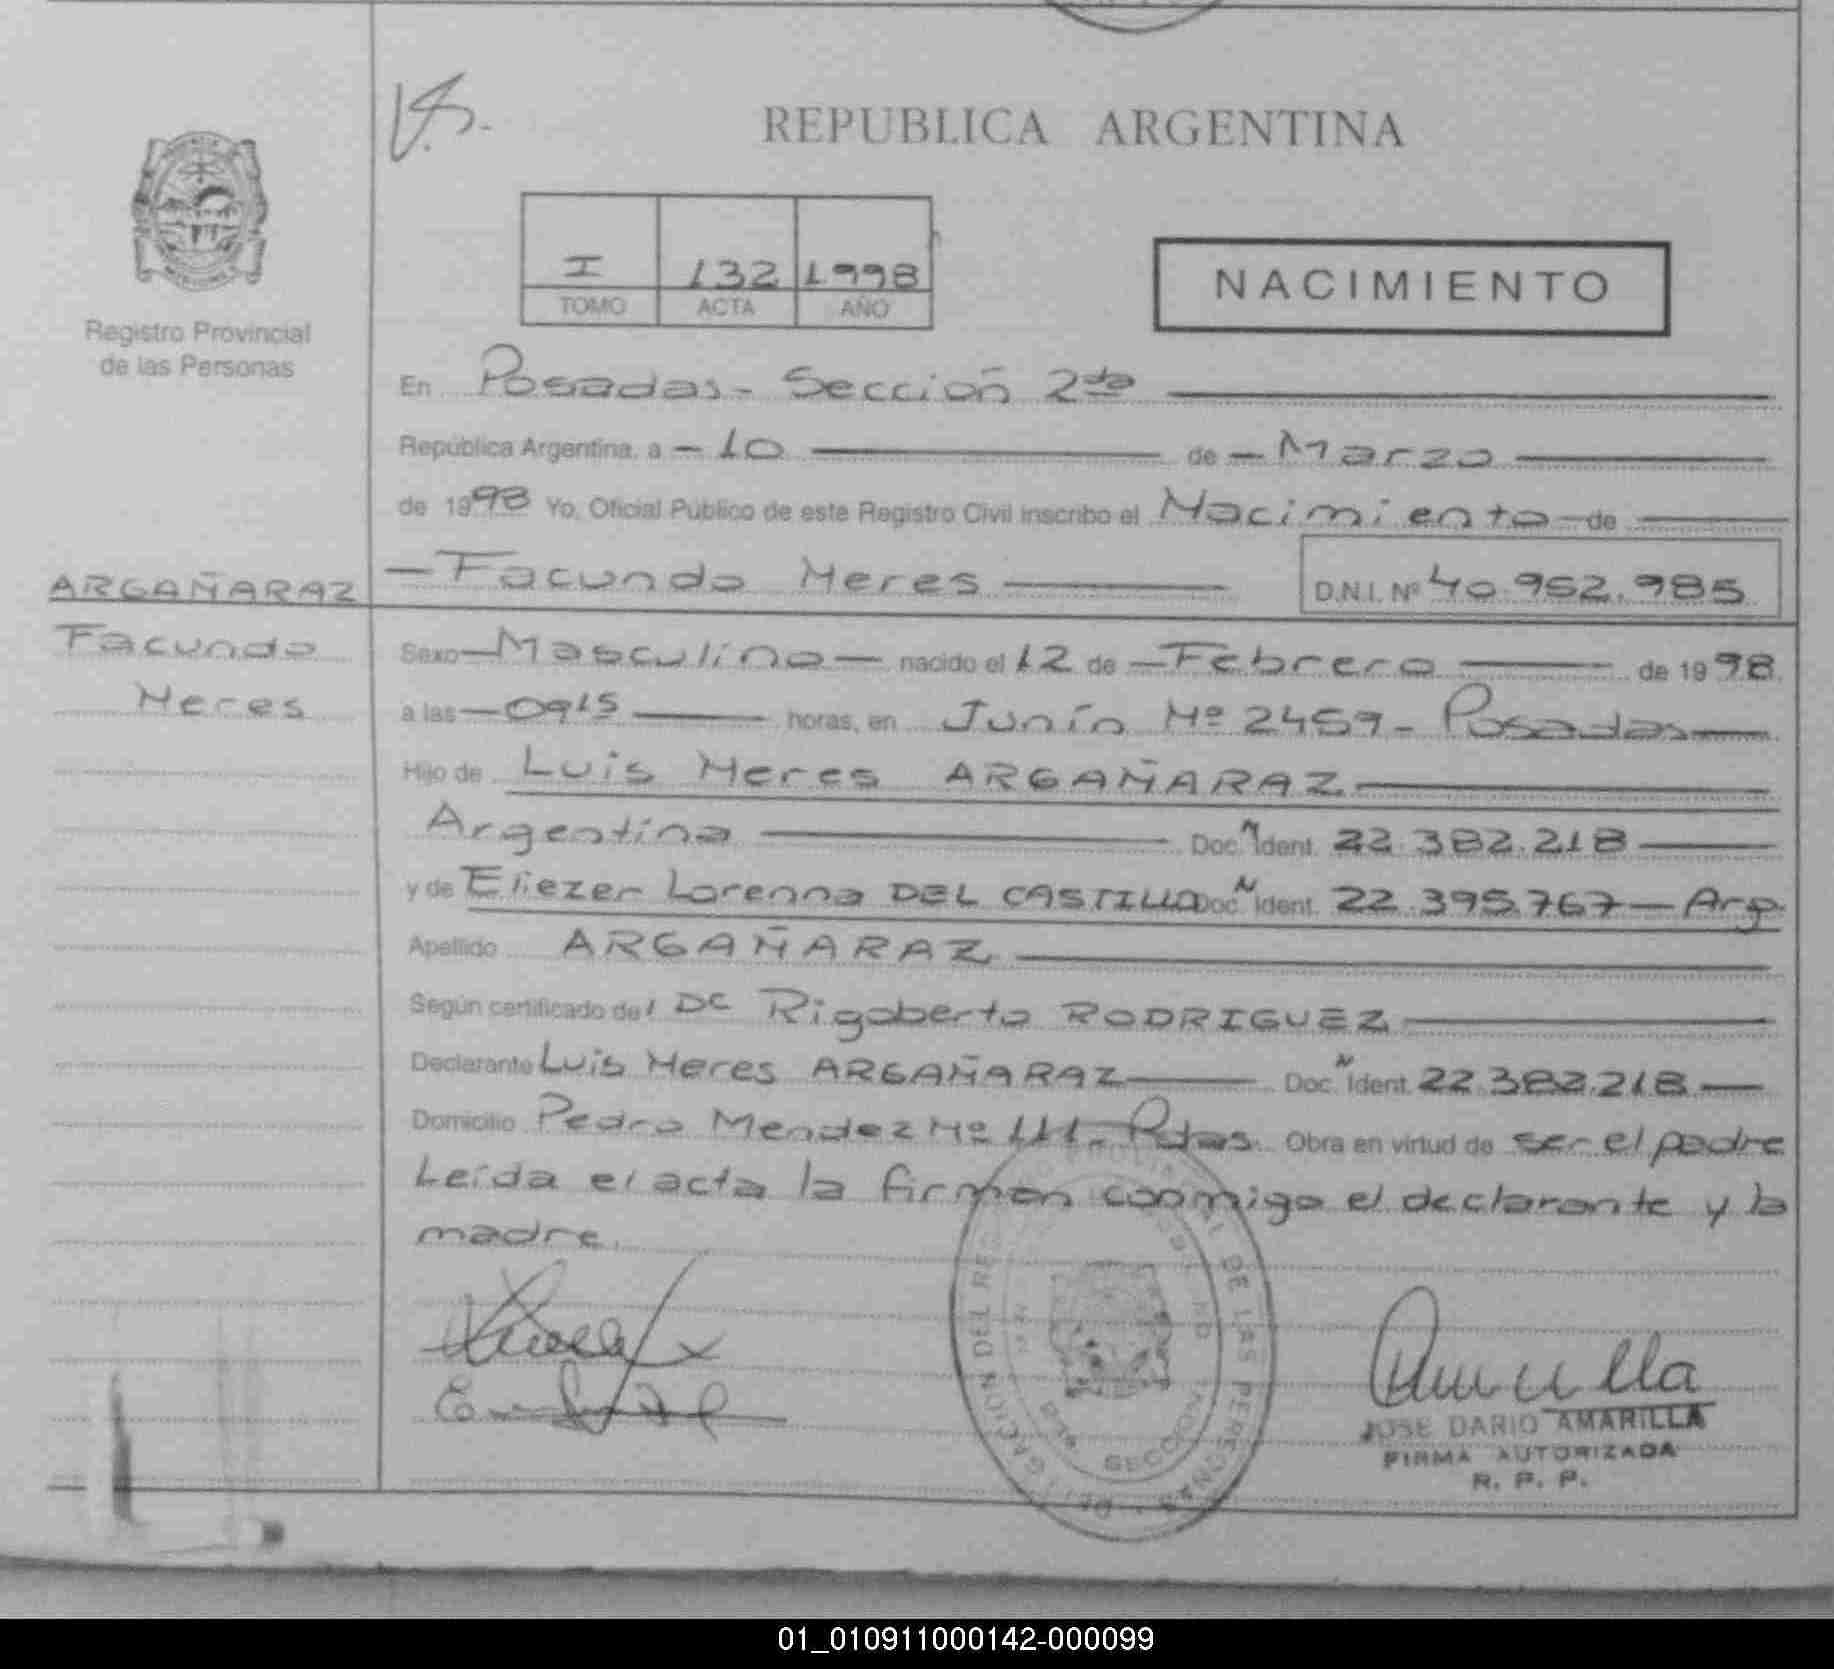 REPUBLICA ARGENTINA
I 132 1998
TOMO ACTA AÑO
NACIMIENTO
Registro Provincial
de las Personas
En Posadas - Sección 2da
República Argentina, a - 10 de - Marzo
de 1998 Yo, Oficial Público de este Registro Civil inscribo el Nacimiento de
- Facundo Heres D.N.I. Nº 40.952.985
ARGAÑARAZ
Facundo
Heres
Sexo - Masculino - nacido el 12 de - Febrero de 1998
a las - 0915 horas, en Junín Nº 2459 - Posadas
Hijo de Luis Heres ARGAÑARAZ
Argentina Doc. N Ident. 22.382.218
y de Eliezer Lorenna DEL CASTILLO Doc. N Ident. 22.395.767 - Arg.
Apellido ARGAÑARAZ
Según certificado del Dc Rigoberto RODRIGUEZ
Declarante Luis Heres ARGAÑARAZ Doc. N Ident. 22.382.218
Domicilio Pedro Mendez Nº 111 - Pdas. Obra en virtud de ser el padre
Leída el acta la firman conmigo el declarante y la
madre.
JOSE DARIO AMARILLA
FIRMA AUTORIZADA
R. P. P.
01_010911000142-000099